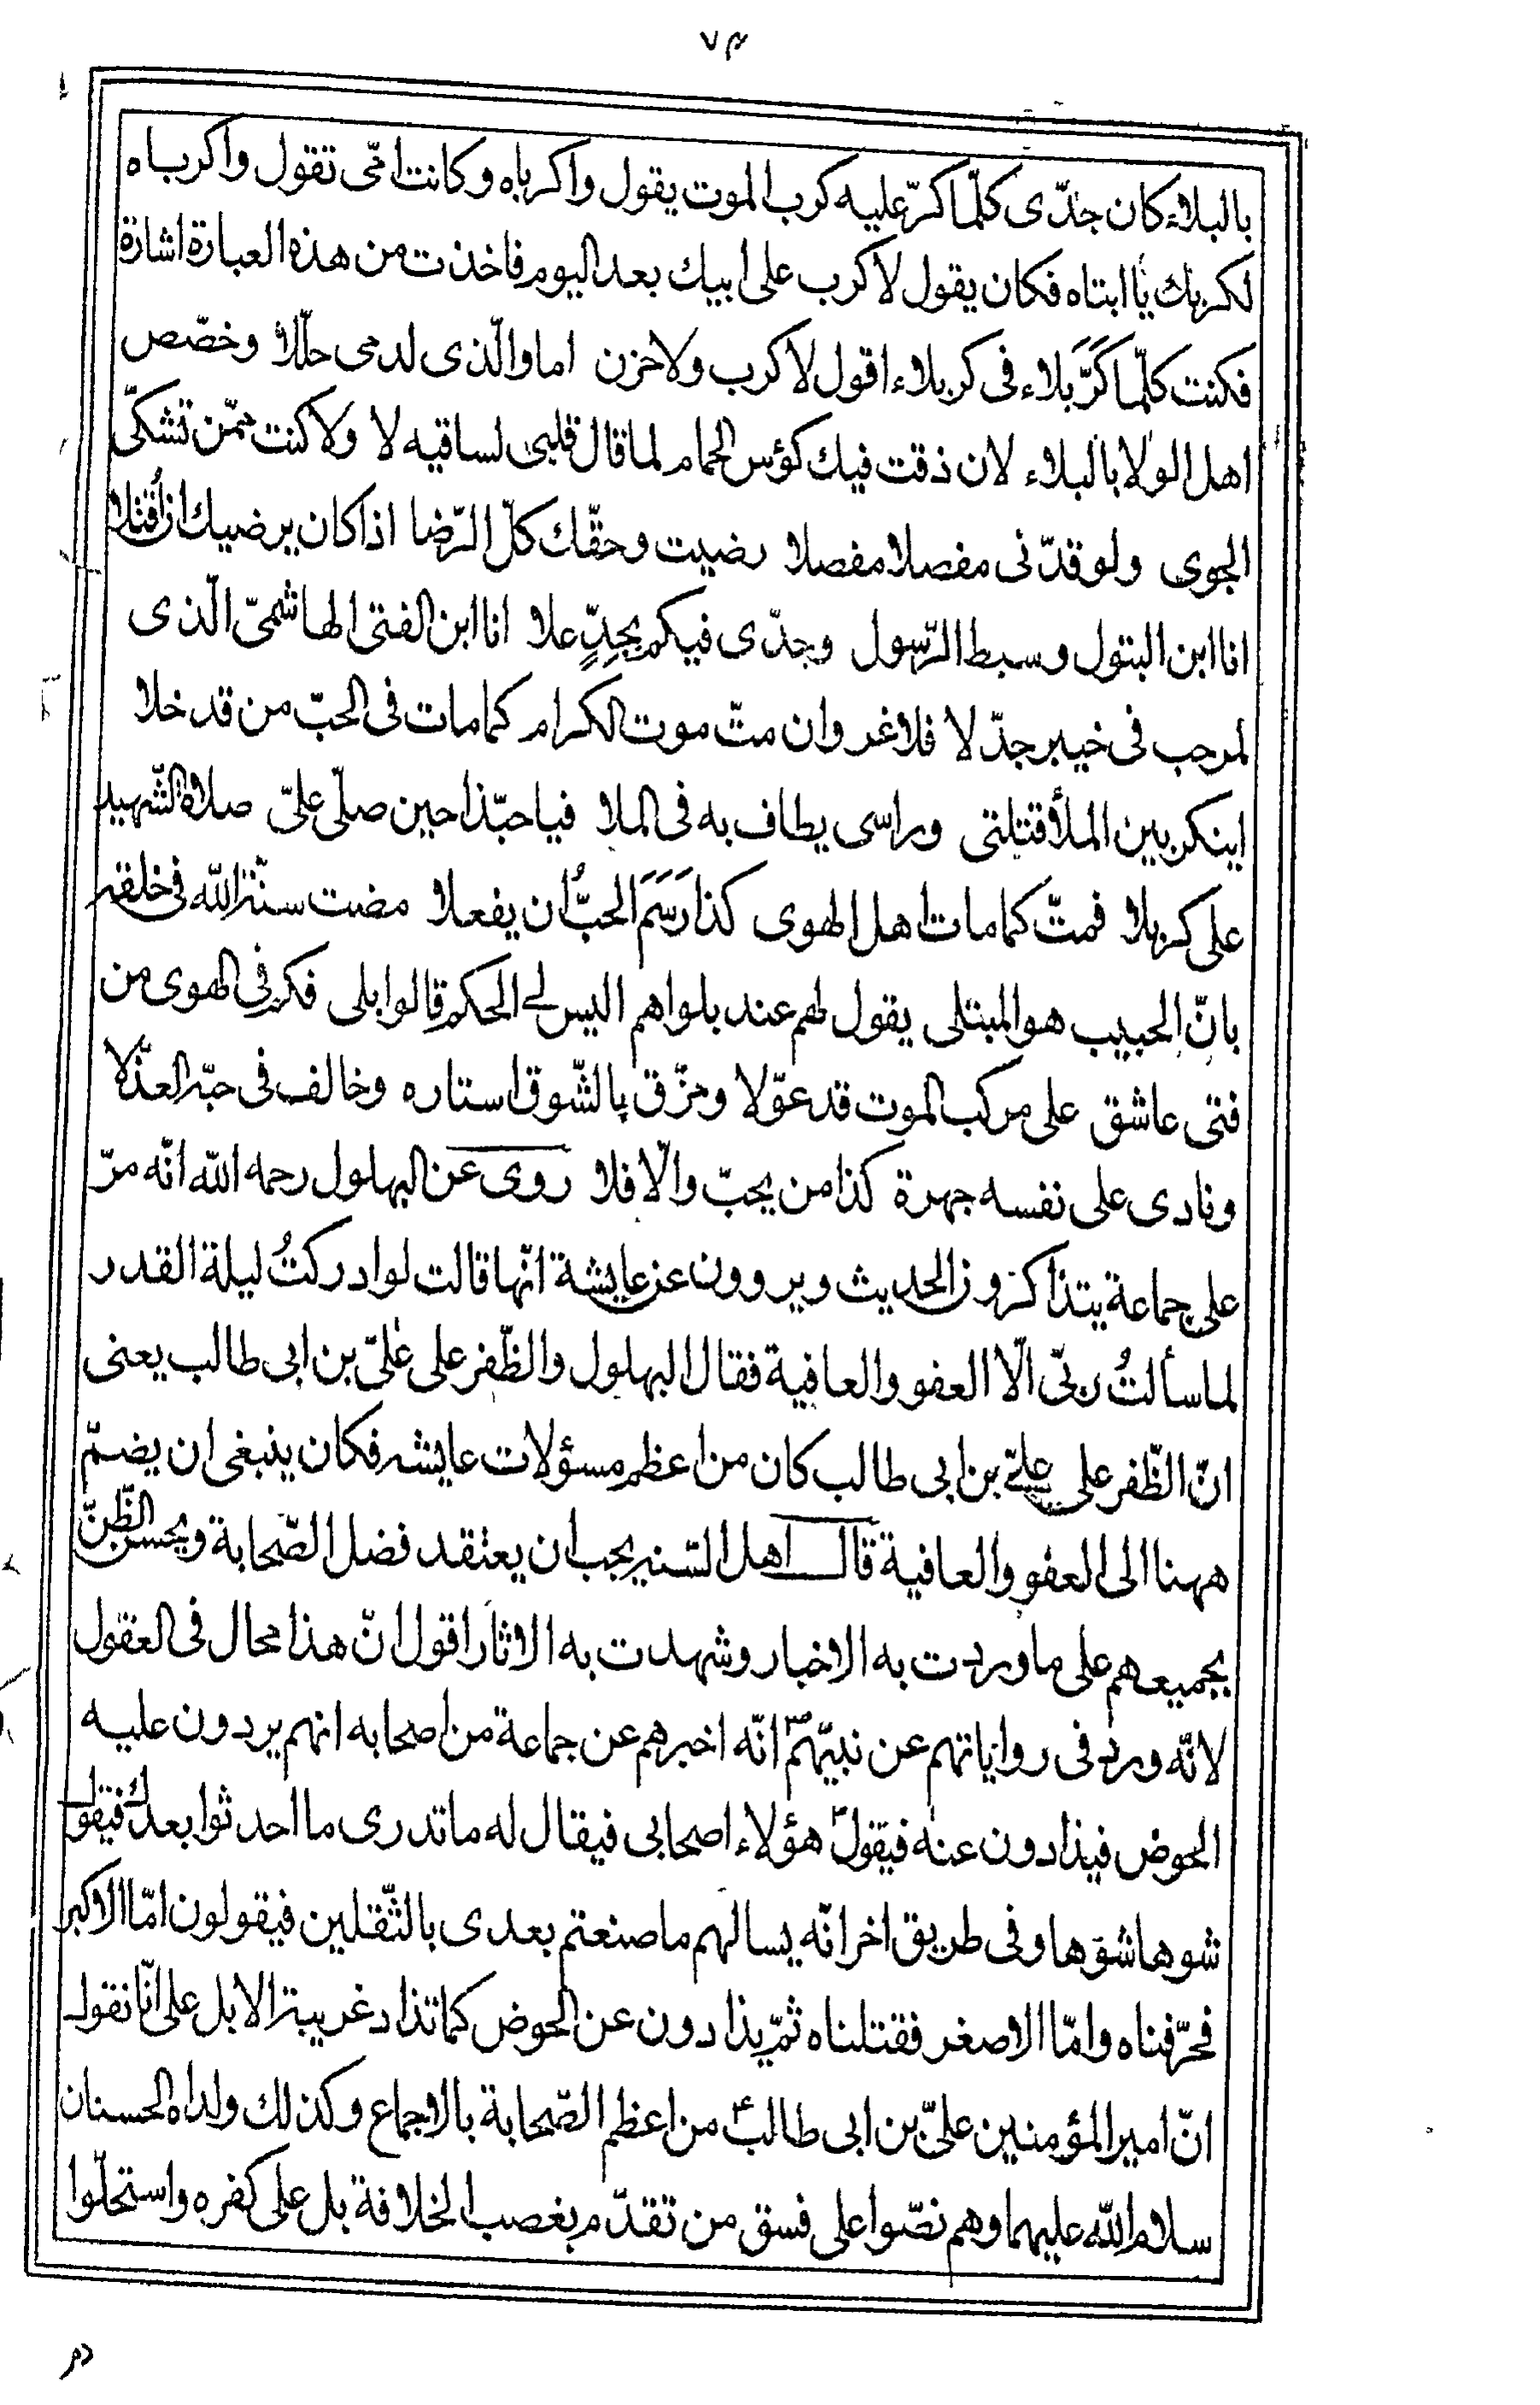 ٧٣
بالبلاء كان جدّى كلّما كرّ عليه كرب الموت يقول واكرباه وكانت امّى تقول واكرباه
لكربك يا ابتاه فكان يقول لا كرب على ابيك بعد اليوم فاخذت من هذه العبارة اشارة
فكنت كلّما كَرَّ بلاء فى كربلاء اقول لا كرب ولا حزن اما والّذى لدمى حلّلا وخصّص
اهل الولا بالبلاء لان ذقت فيك كؤس الحمام لما قال قلبى لساقيه لا ولا كنت ممّن تشكّى
الجوى ولو قدّنى مفصلا مفصلا رضيت وحقّك كلّ الرّضا اذا كان يرضيك ان أُقتلا
انا ابن البتول وسبط الرّسول وجدّى فيكم بجِدٍّ علا انا ابن الفتى الهاشمىّ الّذى
لمرحب فى خيبر جدّلا فلا غر وان متّ موت الكرام كما مات فى الحبّ من قد خلا
اينكر بين الملأ قتلتى وراسى يطاف به فى الملا فيا حبّذا حين صلّى علىّ صلاة الشّهيد
على كربلا فمتّ كما مات اهل الهوى كذا رَسَمَ الحبُّ ان يفعلا مضت سنّة الله فى خلقه
بانّ الحبيب هو المبتلى يقول لهم عند بلواهم اليس لى الحكم قالوا بلى فكم فى الهوى من
فتى عاشق على مركب الموت قد عوّلا ومزّق بالشّوق استاره وخالف فى حبّه العذّلا
ونادى على نفسه جهرة كذا من يحبّ والّا فلا روى عن البهلول رحمه الله انّه مرّ
على جماعة يتذاكرون الحديث ويروون عن عايشة انّها قالت لو ادركتُ ليلة القدر
لما سألتُ ربّى الّا العفو والعافية فقال البهلول والظّفر على علىّ بن ابى طالب يعنى
انّ الظّفر على علىّ بن ابى طالب كان من اعظم مسؤلات عايشه فكان ينبغى ان يضمّ
ههنا الى العفو والعافية قال اهل السّنه يجب ان يعتقد فضل الصّحابة ويحسن الظّنّ
بجميعهم على ما وردت به الاخبار وشهدت به الاثار اقول انّ هذا محال فى العقول
لانّه ورد فى رواياتهم عن نبيّهم ص انّه اخبرهم عن جماعة من اصحابه انهم يردون عليه
الحوض فيذادون عنه فيقول هؤلاء اصحابى فيقال له ما تدرى ما احدثوا بعدك فيقول
شوها شوها وفى طريق اخر انّه يسالهم ما صنعتم بعدى بالثّقلين فيقولون امّا الاكبر
فحرّفناه وامّا الاصغر فقتلناه ثمّ يذادون عن الحوض كما تذاد غريبة الابل على انّا نقول
انّ امير المؤمنين علىّ بن ابى طالب ع من اعظم الصّحابة بالاجماع وكذلك ولداه الحسنان
سلام الله عليهما وهم نصّوا على فسق من تقدّم بغصب الخلافة بل على كفره واستحلّوا
دم